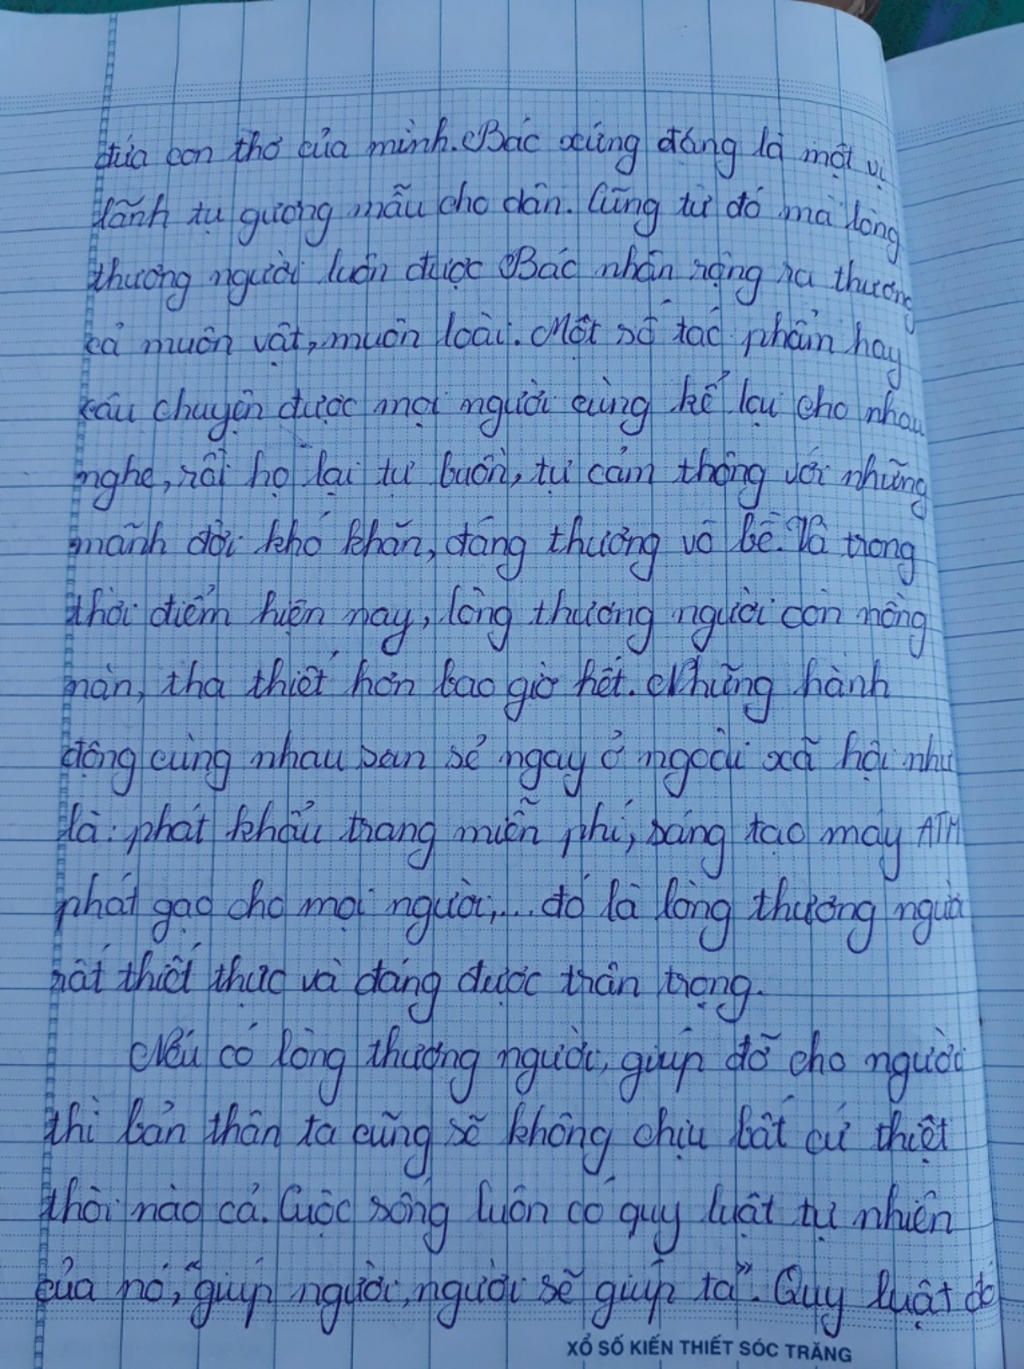 đứa con thơ của mình. Bác xứng đáng là một vị
lãnh tụ gương mẫu cho dân. Cũng từ đó mà lòng
thương người luôn được Bác nhân rộng ra thương
cả muôn vật, muôn loài. Một số tác phẩm hay
câu chuyện được mọi người cùng kể lại cho nhau
nghe, rồi họ lại tự buồn, tự cảm thông với những
mãnh đời khó khăn, đáng thương vô bề. Và trong
thời điểm hiện nay, lòng thương người còn nồng
nàn, tha thiết hơn bao giờ hết. Những hành
động cùng nhau san sẻ ngay ở ngoài xã hội như
là: phát khẩu trang miễn phí, sáng tạo máy ATM
phát gạo cho mọi người,... đó là lòng thương người
rất thiết thực và đáng được trân trọng.
Nếu có lòng thương người, giúp đỡ cho người
thì bản thân ta cũng sẽ không chịu bất cứ thiệt
thòi nào cả. Cuộc sống luôn có quy luật tự nhiên
của nó, "giúp người, người sẽ giúp ta". Quy luật đó
XỔ SỐ KIẾN THIẾT SÓC TRĂNG